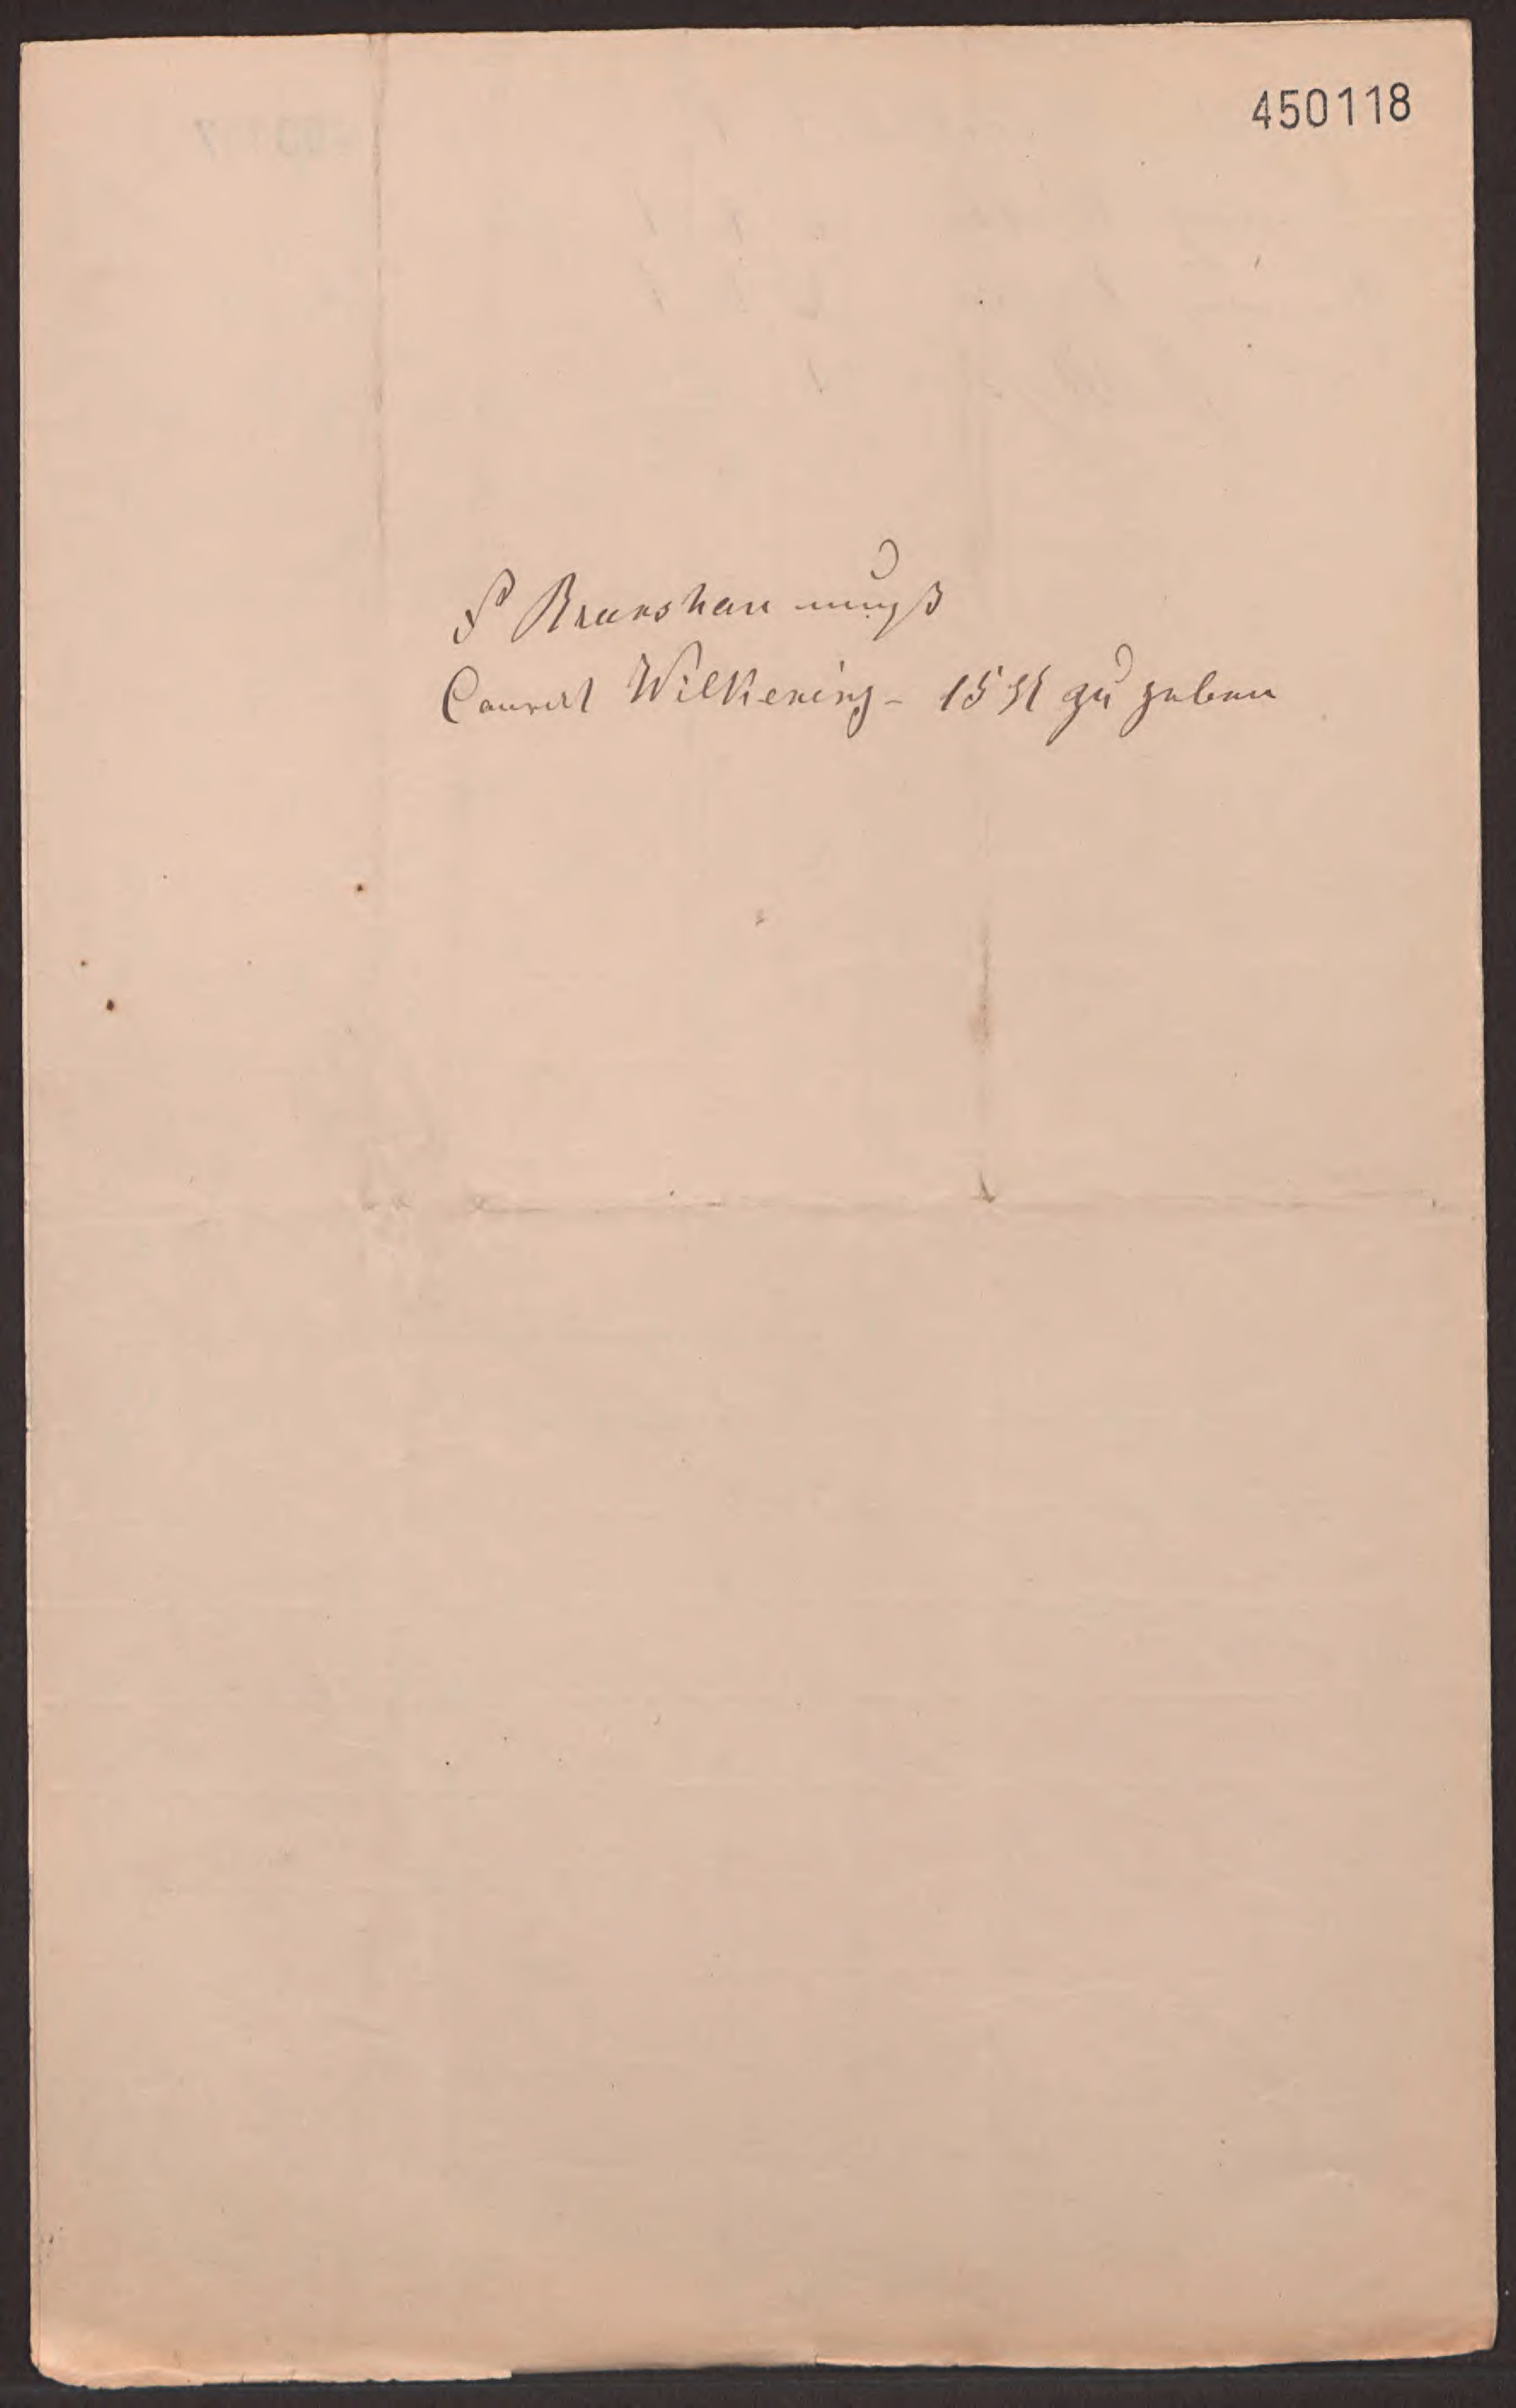 450118
P Branshau muß
Conrad Wilkening - 15 zu geben